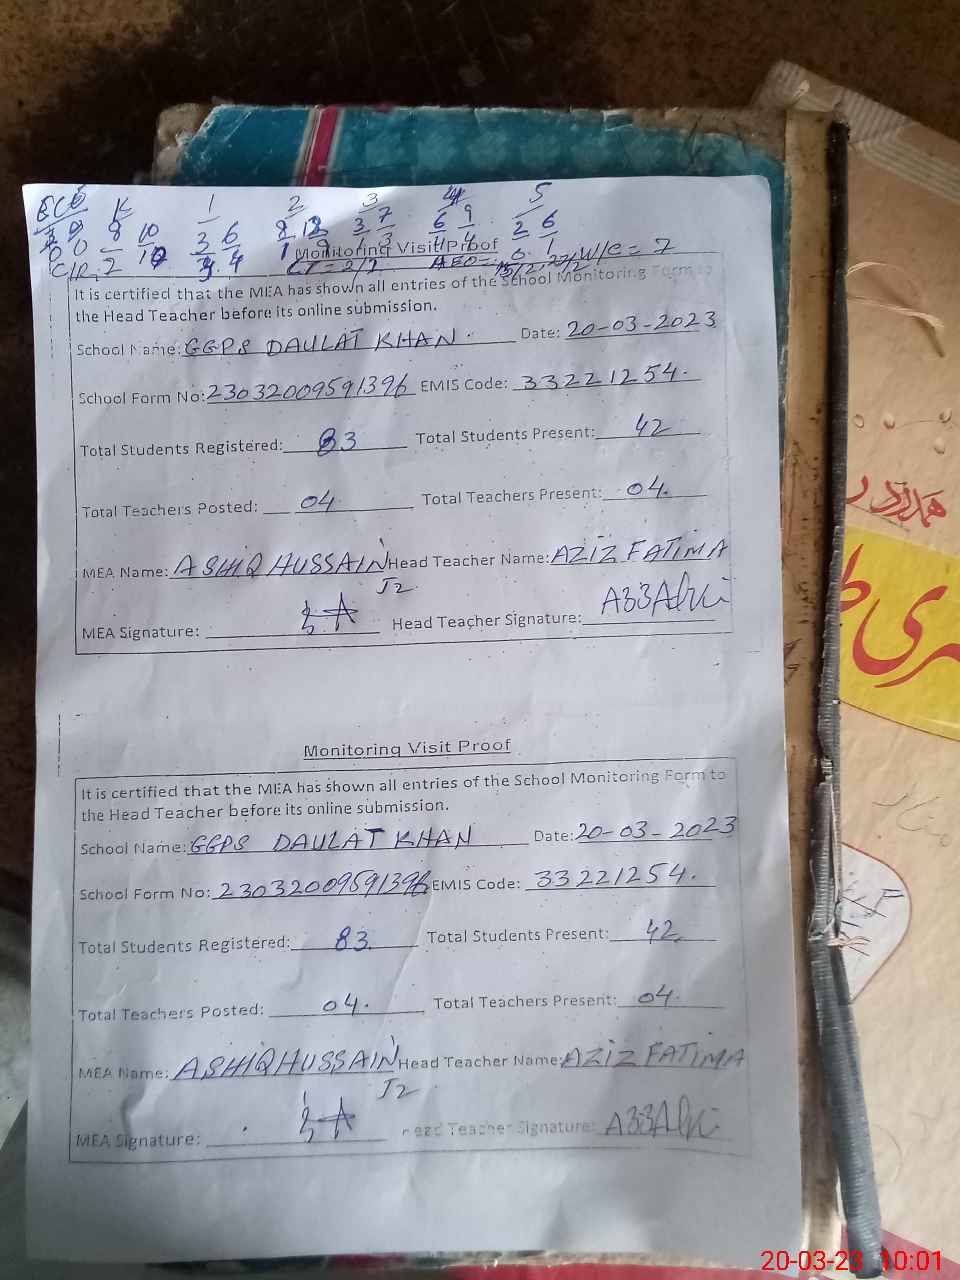 ECE K 1 2 3 4 5
Monitoring Visit Proof
W/C = 7
It is certified that the MEA has shown all entries of the School Monitoring Form to
the Head Teacher before its online submission.
School Name: GGPS DAULAT KHAN. Date: 20-03-2023
School Form No: 23032009591396 EMIS Code: 33221254.
Total Students Registered: 83 Total Students Present: 42
Total Teachers Posted: 04 Total Teachers Present: 04.
MEA Name: ASHIQ HUSSAIN Head Teacher Name: AZIZ FATIMA
J2
MEA Signature: Head Teacher Signature:
Monitoring Visit Proof
It is certified that the MEA has shown all entries of the School Monitoring Form to
the Head Teacher before its online submission.
School Name: GGPS DAULAT KHAN Date: 20-03-2023
School Form No: 23032009591396 EMIS Code: 33221254.
Total Students Registered: 83. Total Students Present: 42.
Total Teachers Posted: 04. Total Teachers Present: 04.
MEA Name: ASHIQ HUSSAIN Head Teacher Name: AZIZ FATIMA
J2
MEA Signature: Head Teacher Signature:
20-03-23 10:01